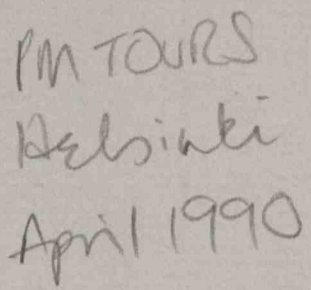 PM TOURS
Helsinki
April 1990